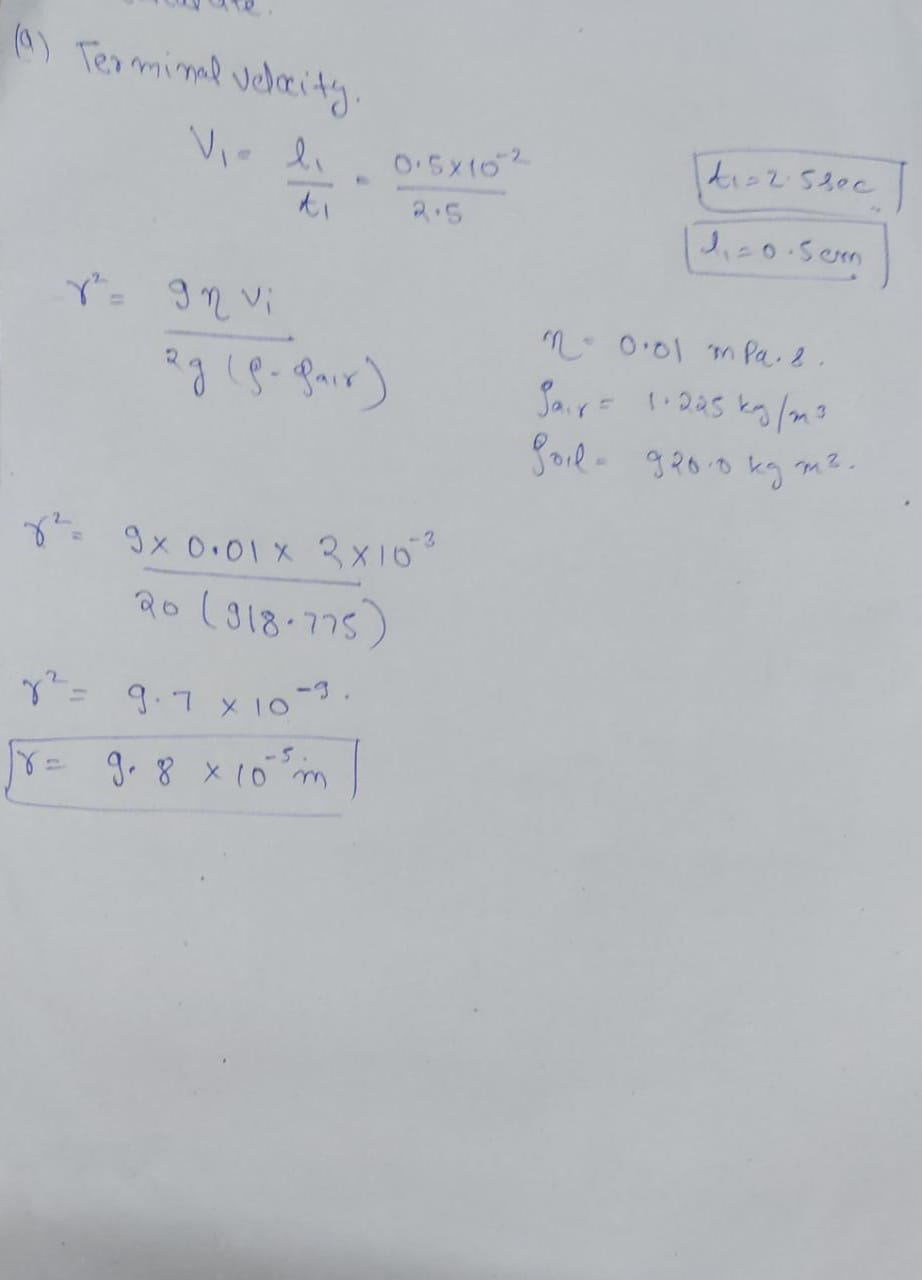 (a) Terminal velocity.
V₁ = l₁/t₁ = 0.5×10⁻²/2.5
t₁=2.5sec
l₁=0.5cm
r² = 9η v₁ / 2g (ρ-ρair)
η = 0.01 mPa.s.
ρair = 1.225 kg/m³
ρoil = 920.0 kg m³.
r² = 9×0.01×2×10⁻³ / 20 (918.775)
r² = 9.7 ×10⁻⁹.
r = 9.8 ×10⁻⁵ m